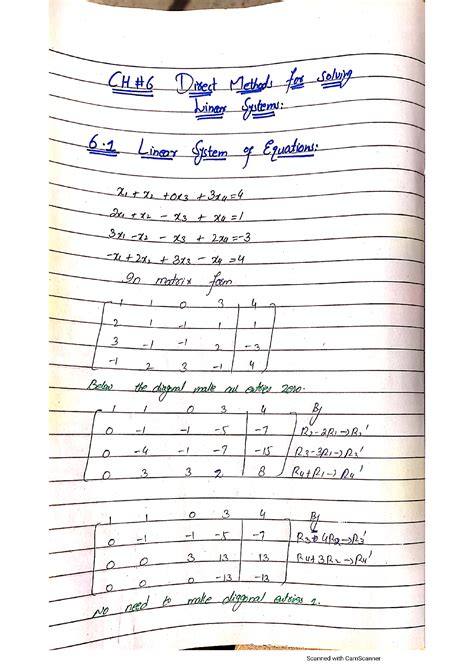 CH#6 Direct Methods for solving
Linear Systems:
6.1 Linear System of Equations:
x1 + x2 + 0x3 + 3x4 = 4
2x1 + x2 - x3 + x4 = 1
3x1 - x2 - x3 + 2x4 = -3
-x1 + 2x2 + 3x3 - x4 = 4
In matrix form
1 1 0 3 4
2 1 -1 1 1
3 -1 -1 2 -3
-1 2 3 -1 4
Below the diagonal make all entries zero.
1 1 0 3 4 By
0 -1 -1 -5 -7 R2-2R1→R2'
0 -4 -1 -7 -15 R3-3R1→R3'
0 3 3 2 8 R4+R1→R4'
1 1 0 3 4 By
0 -1 -1 -5 -7 R3-4R2→R3'
0 0 3 13 13 R4+3R2→R4'
0 0 0 -13 -13
No need to make diagonal entries 1.
Scanned with CamScanner